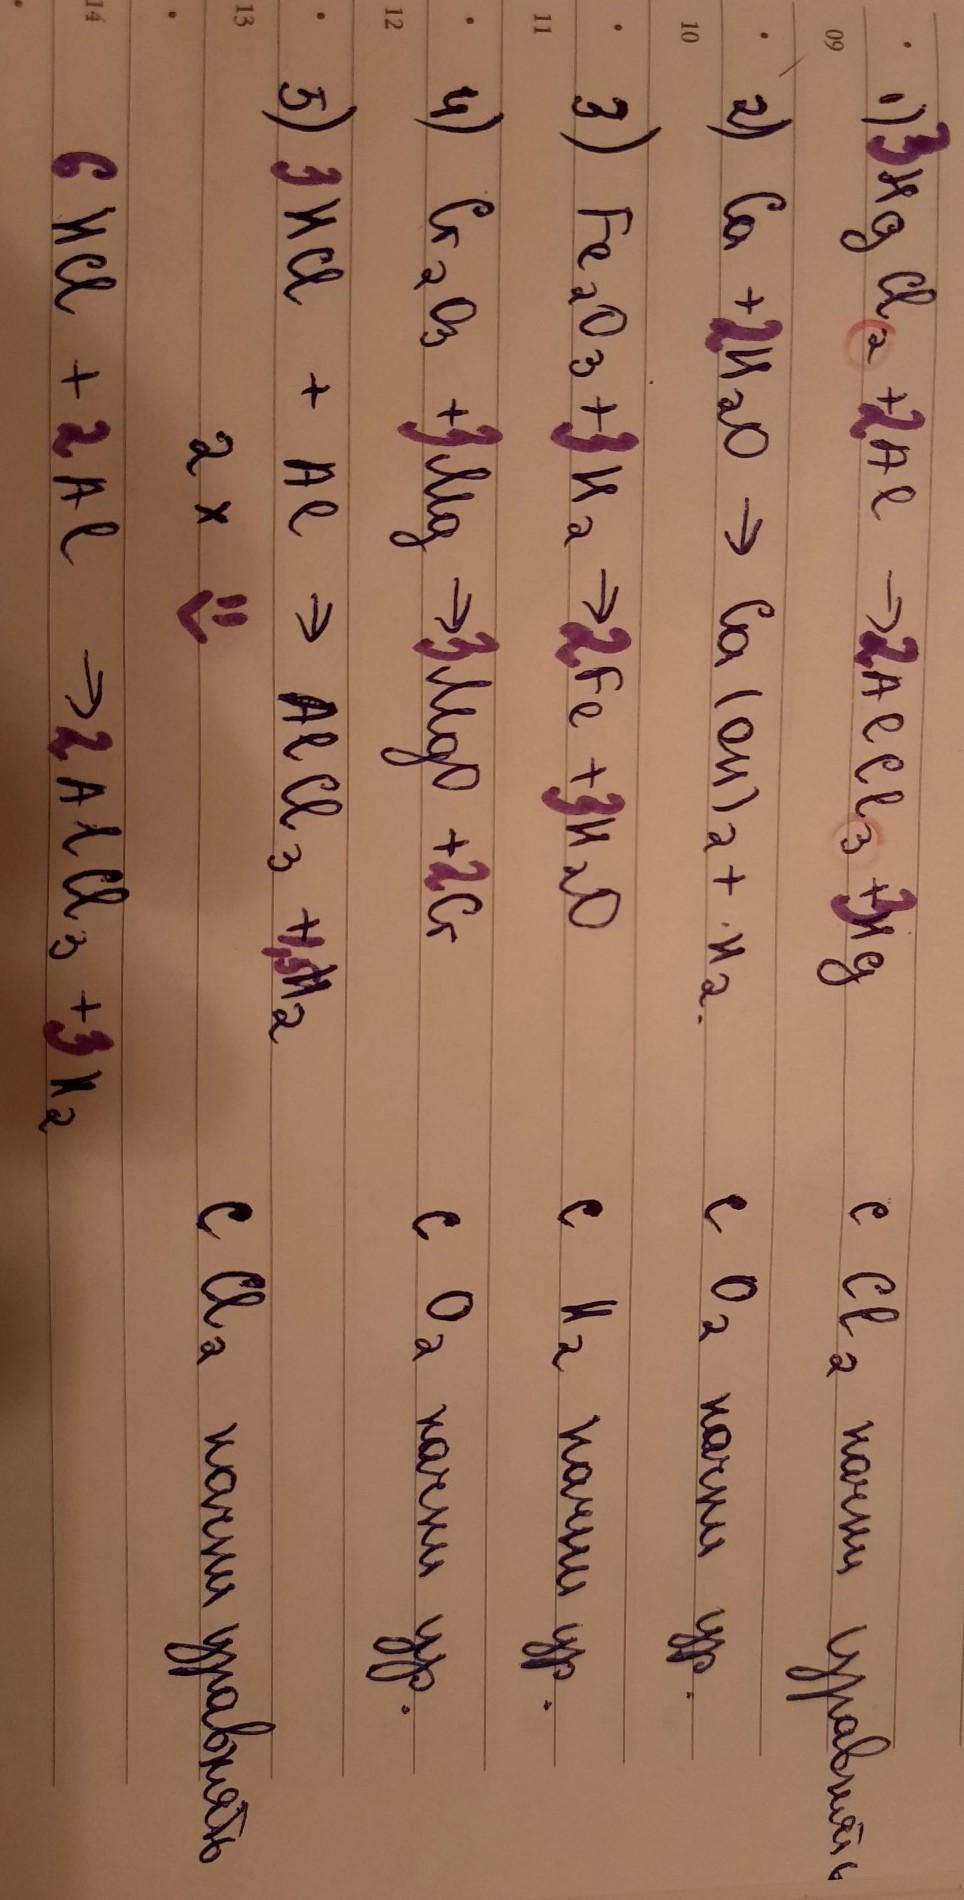 09
1) 3HgCl2 + 2Al → 2AlCl3 + 3Hg с Cl2 начни уравнять
10
2) Ca + 2H2O → Ca(OH)2 + H2. с O2 начни ур.
11
3) Fe2O3 + 3H2 → 2Fe + 3H2O с H2 начни ур.
12
4) Cr2O3 + 3Mg → 3MgO + 2Cr с O2 начни ур.
5) 3HCl + Al → AlCl3 + 1,5H2
13
2 x с Cl2 начни уравнять
14
6HCl + 2Al → 2AlCl3 + 3H2